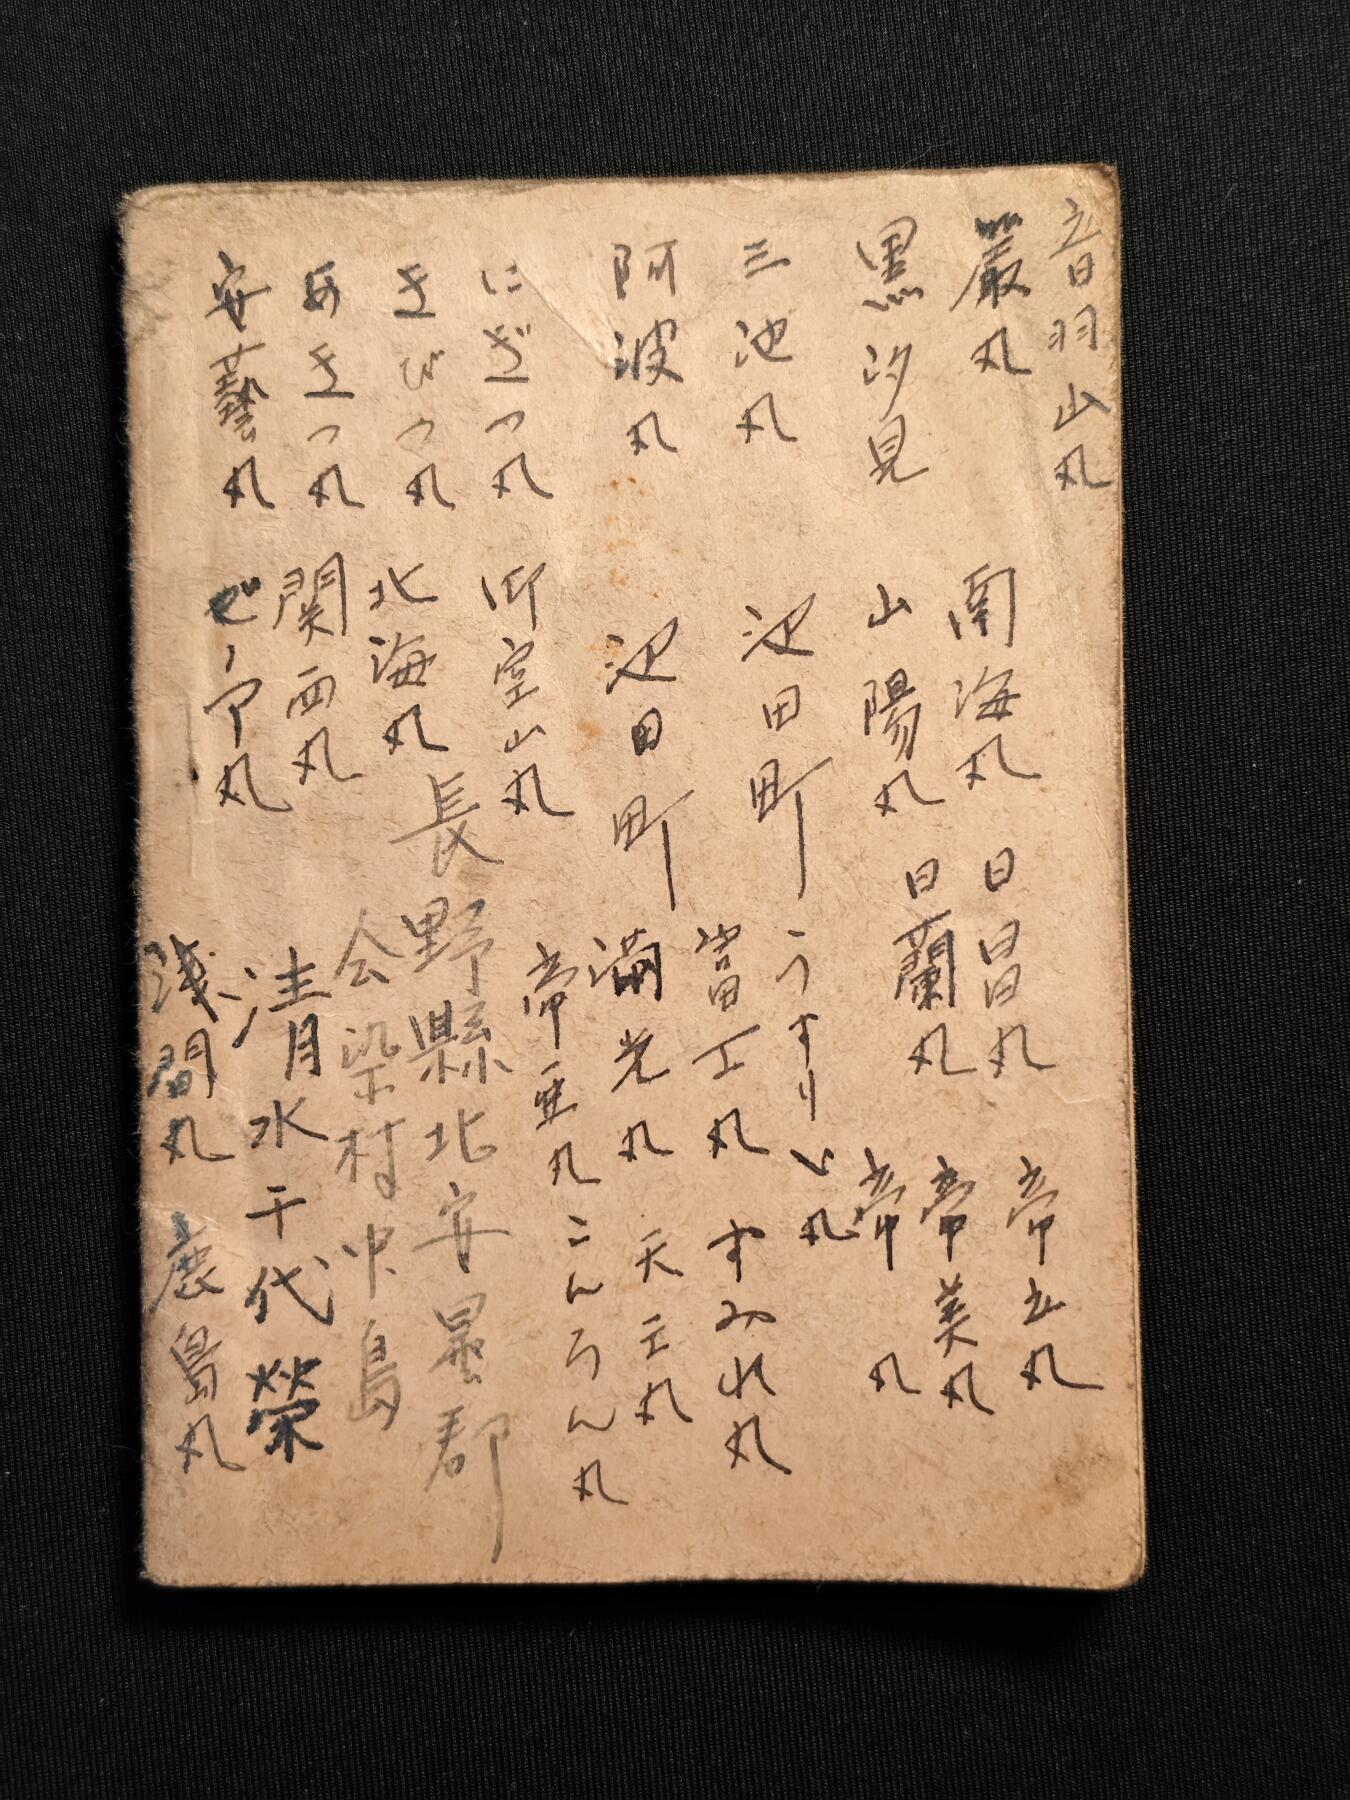 音羽山丸
巌丸
黒汐見
三池丸
阿波丸
にぎつ丸
きびつ丸
あきつ丸
安藝丸
南海丸
山陽丸
池田町
池田町
御室山丸
北海丸
関西丸
ぜ丸
日昌丸
日蘭丸
うすりい丸
當丸
満光丸
帝亜丸
長野縣北安曇郡
会染村中島
清水千代榮
浅間丸
帝立丸
帝美丸
帝 丸
すみれ丸
天王丸
こんろん丸
鹿島丸